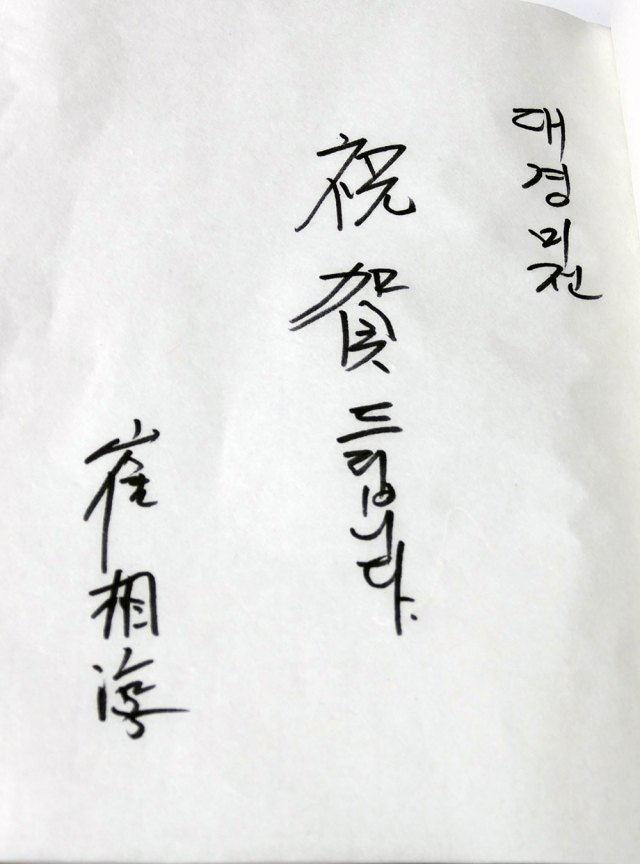 대경미전
祝賀드립니다.
崔相淳